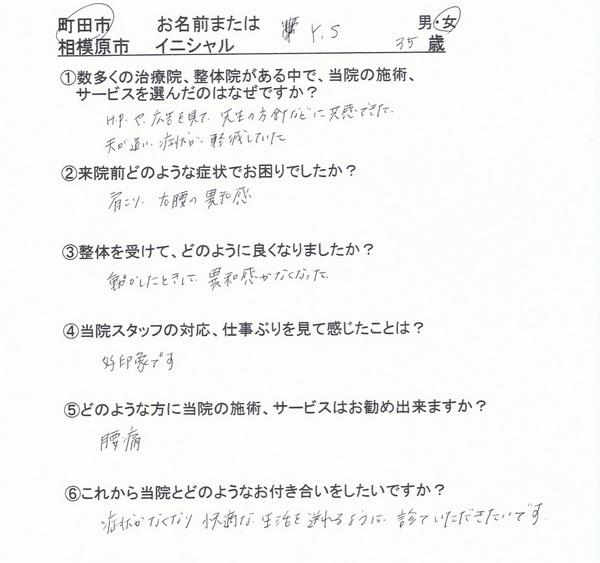 町田市 お名前または Y.S 男・女
相模原市 イニシャル 35 歳
①数多くの治療院、整体院がある中で、当院の施術、
サービスを選んだのはなぜですか？
H.P.や、広告を見て、先生の方針などに共感できた。
夫が通い、症状が、軽減していた
②来院前どのような症状でお困りでしたか？
肩こり、右腰の異和感
③整体を受けて、どのように良くなりましたか？
動かしたときに、異和感がなくなった。
④当院スタッフの対応、仕事ぶりを見て感じたことは？
好印象です
⑤どのような方に当院の施術、サービスはお勧め出来ますか？
腰痛
⑥これから当院とどのようなお付き合いをしたいですか？
症状がなくなり 快適な 生活を送れるように、診ていただきたいです。